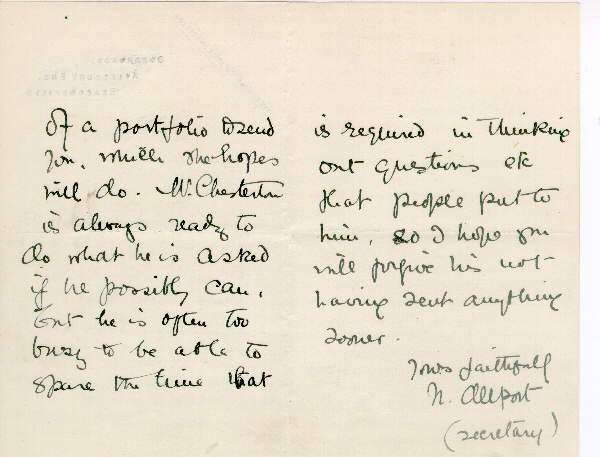 of a portfolio to send
you, which she hopes
will do. Mr. Chesterton
is always ready to
do what he is asked
if he possibly can,
but he is often too
busy to be able to
spare the time that
is required in thinking
out questions etc
that people put to
him, so I hope you
will forgive his not
having sent anything
sooner.
Yours faithfully
N. Allport
(secretary)